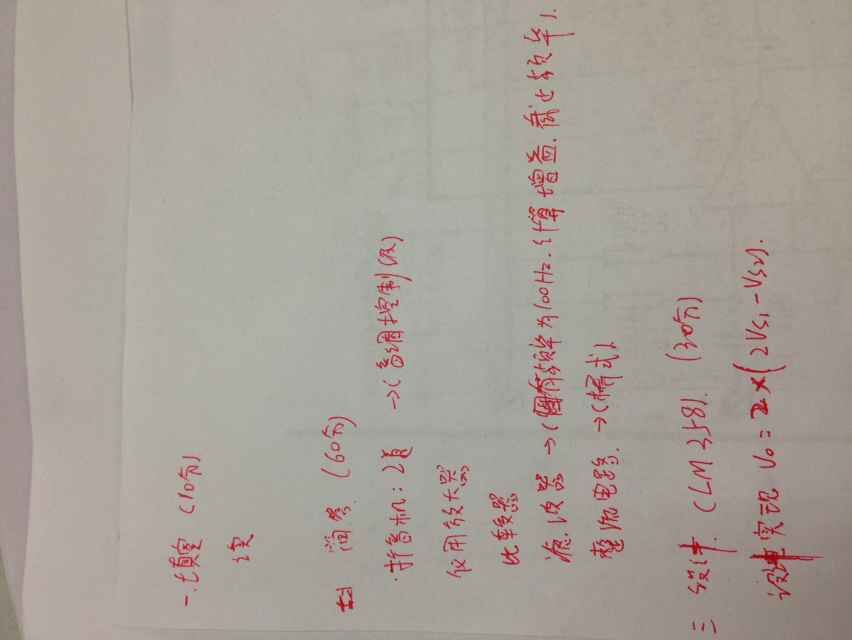 一.填空 (10分)
简答 (60分)
扩音机: 2道 →(音调控制级)
仪用放大器
比较器
滤波器 →(固有频率为100Hz.计算增益.截止频率).
整流电路. →(桥式).
三 设计. (LM358). (30分)
设计实现 Vo = 2×(2VS1-VS2).